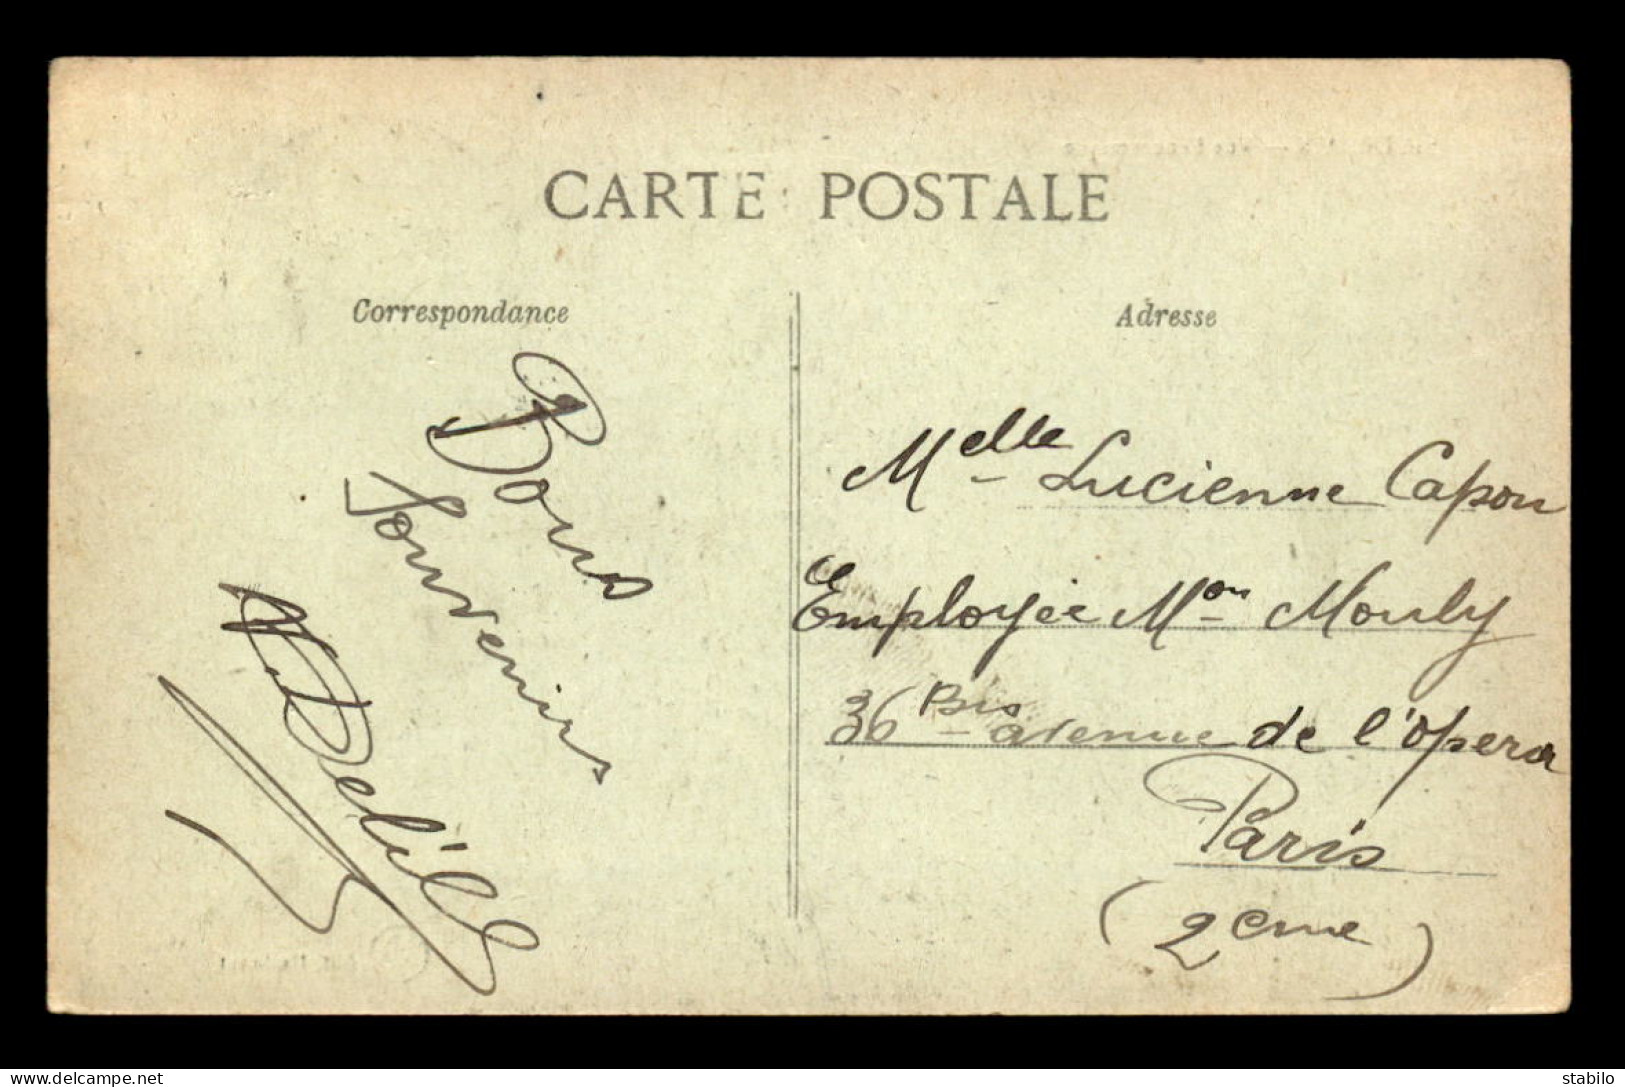 CARTE POSTALE
Correspondance
Adresse
Bons
Souvenirs
Melle Lucienne Capon
Employée Mon Mouly
36 Bis avenue de l'opera
Paris
(2eme)
delcampe.net
stabilo